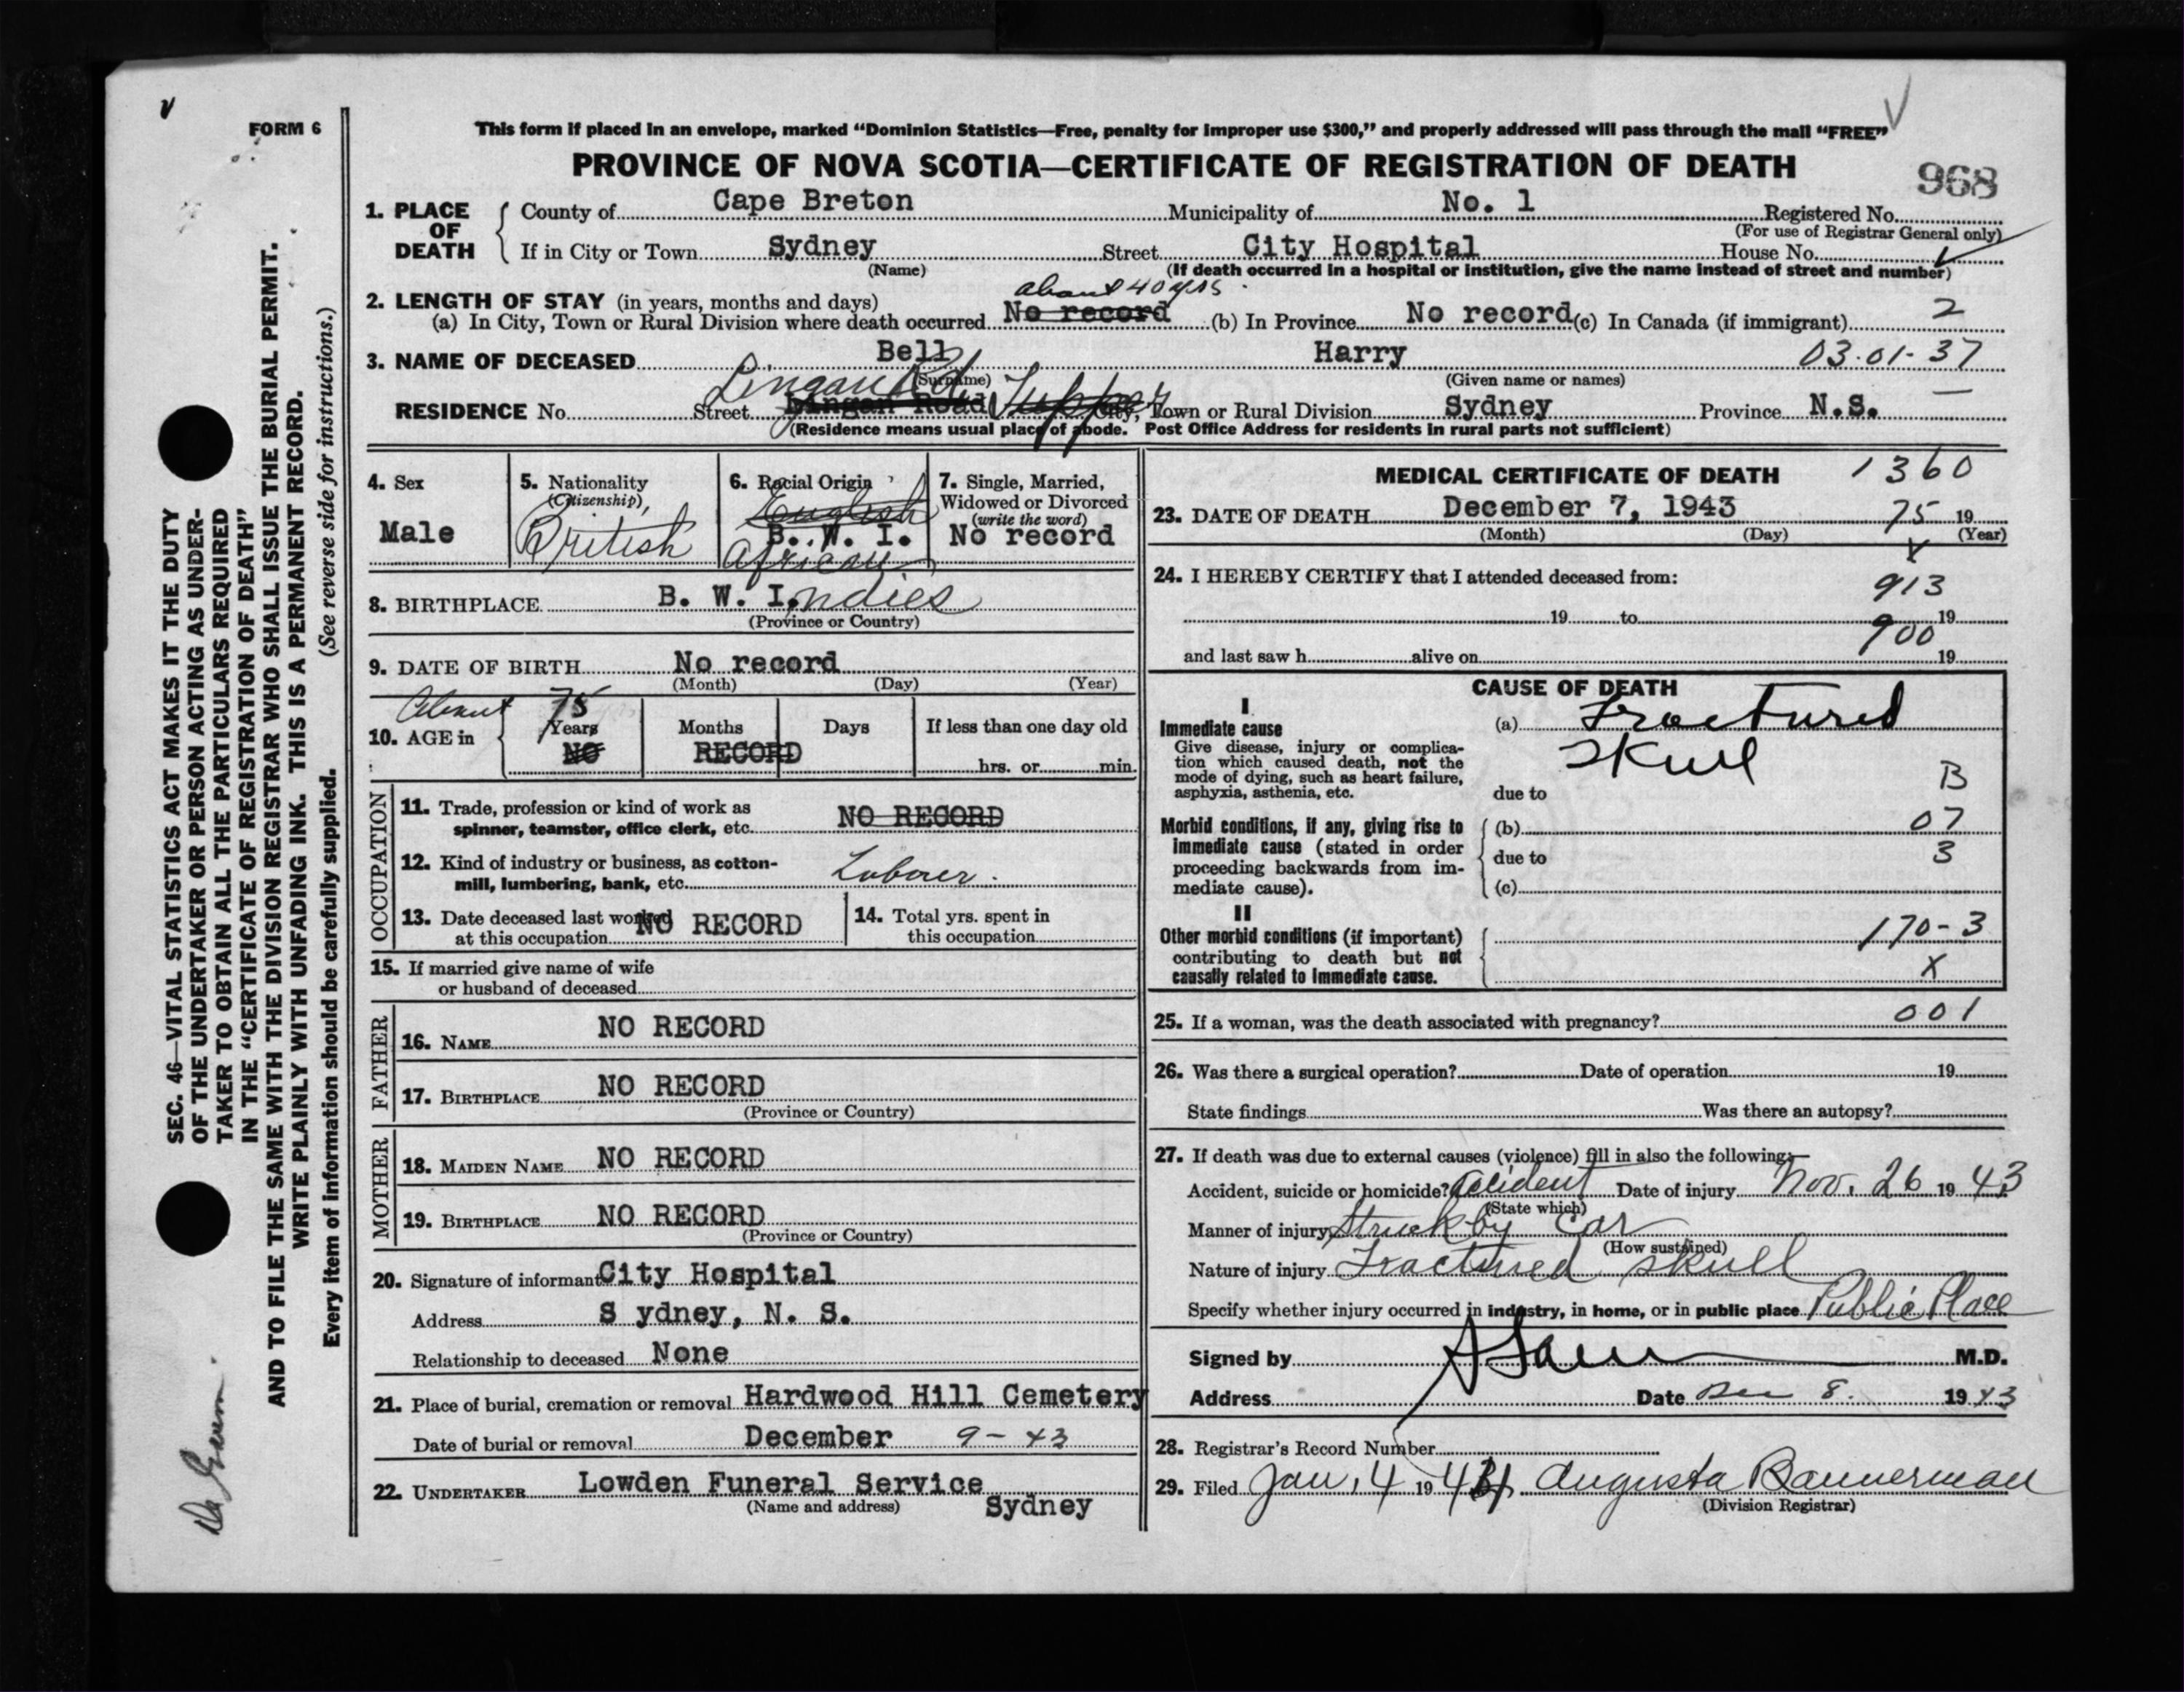 V
V
FORM 6
This form if placed in an envelope, marked "Dominion Statistics—Free, penalty for improper use $300," and properly addressed will pass through the mail "FREE"
PROVINCE OF NOVA SCOTIA—CERTIFICATE OF REGISTRATION OF DEATH
968
1. PLACE OF DEATH County of Cape Breton Municipality of No. 1 Registered No.
(For use of Registrar General only)
If in City or Town Sydney Street City Hospital House No.
(Name) (If death occurred in a hospital or institution, give the name instead of street and number)
2. LENGTH OF STAY (in years, months and days) about 40 yrs
(a) In City, Town or Rural Division where death occurred No record (b) In Province No record (c) In Canada (if immigrant) 2
3. NAME OF DECEASED Bell Harry 03-01-37
(Surname) (Given name or names)
Lingan Rd
RESIDENCE No. Street Lingan Road Tupper City, Town or Rural Division Sydney Province N.S. —
(Residence means usual place of abode. Post Office Address for residents in rural parts not sufficient)
4. Sex
Male
5. Nationality
(Citizenship)
British
6. Racial Origin
English
B. W. I.
African
7. Single, Married,
Widowed or Divorced
(write the word)
No record
8. BIRTHPLACE B. W. Indies
(Province or Country)
9. DATE OF BIRTH No record
(Month) (Day) (Year)
About 75
10. AGE in Years Months Days If less than one day old
NO RECORD hrs. or min.
OCCUPATION
11. Trade, profession or kind of work as
spinner, teamster, office clerk, etc. NO RECORD
12. Kind of industry or business, as cotton-
mill, lumbering, bank, etc. Laborer.
13. Date deceased last worked
at this occupation NO RECORD
14. Total yrs. spent in
this occupation
15. If married give name of wife
or husband of deceased
FATHER
16. NAME NO RECORD
17. BIRTHPLACE NO RECORD
(Province or Country)
MOTHER
18. MAIDEN NAME NO RECORD
19. BIRTHPLACE NO RECORD
(Province or Country)
20. Signature of informant City Hospital
Address S ydney, N. S.
Relationship to deceased None
21. Place of burial, cremation or removal Hardwood Hill Cemetery
Date of burial or removal December 9-43
22. UNDERTAKER Lowden Funeral Service
(Name and address) Sydney
MEDICAL CERTIFICATE OF DEATH 1360
23. DATE OF DEATH December 7, 1943 75 19
(Month) (Day) (Year)
X
24. I HEREBY CERTIFY that I attended deceased from:
913
19 to 19
900
and last saw h alive on 19
CAUSE OF DEATH
I
Immediate cause
Give disease, injury or complica-
tion which caused death, not the
mode of dying, such as heart failure,
asphyxia, asthenia, etc.
(a) Fractured
Skull
B
due to
Morbid conditions, if any, giving rise to
immediate cause (stated in order
proceeding backwards from im-
mediate cause).
(b) 07
due to 3
(c)
II
Other morbid conditions (if important)
contributing to death but not
causally related to immediate cause.
170-3
X
25. If a woman, was the death associated with pregnancy? 001
26. Was there a surgical operation? Date of operation 19
State findings Was there an autopsy?
27. If death was due to external causes (violence) fill in also the following:—
Accident, suicide or homicide? Accident Date of injury Nov. 26 19 43
(State which)
Manner of injury Struck by car
(How sustained)
Nature of injury Fractured skull
Specify whether injury occurred in industry, in home, or in public place Public Place
Signed by M.D.
Address Date Dec 8. 19 43
28. Registrar's Record Number
29. Filed Jan. 4 19 44 Augusta Bannerman
(Division Registrar)
SEC. 46—VITAL STATISTICS ACT MAKES IT THE DUTY
OF THE UNDERTAKER OR PERSON ACTING AS UNDER-
TAKER TO OBTAIN ALL THE PARTICULARS REQUIRED
IN THE "CERTIFICATE OF REGISTRATION OF DEATH"
AND TO FILE THE SAME WITH THE DIVISION REGISTRAR WHO SHALL ISSUE THE BURIAL PERMIT.
WRITE PLAINLY WITH UNFADING INK. THIS IS A PERMANENT RECORD.
Every item of information should be carefully supplied. (See reverse side for instructions.)